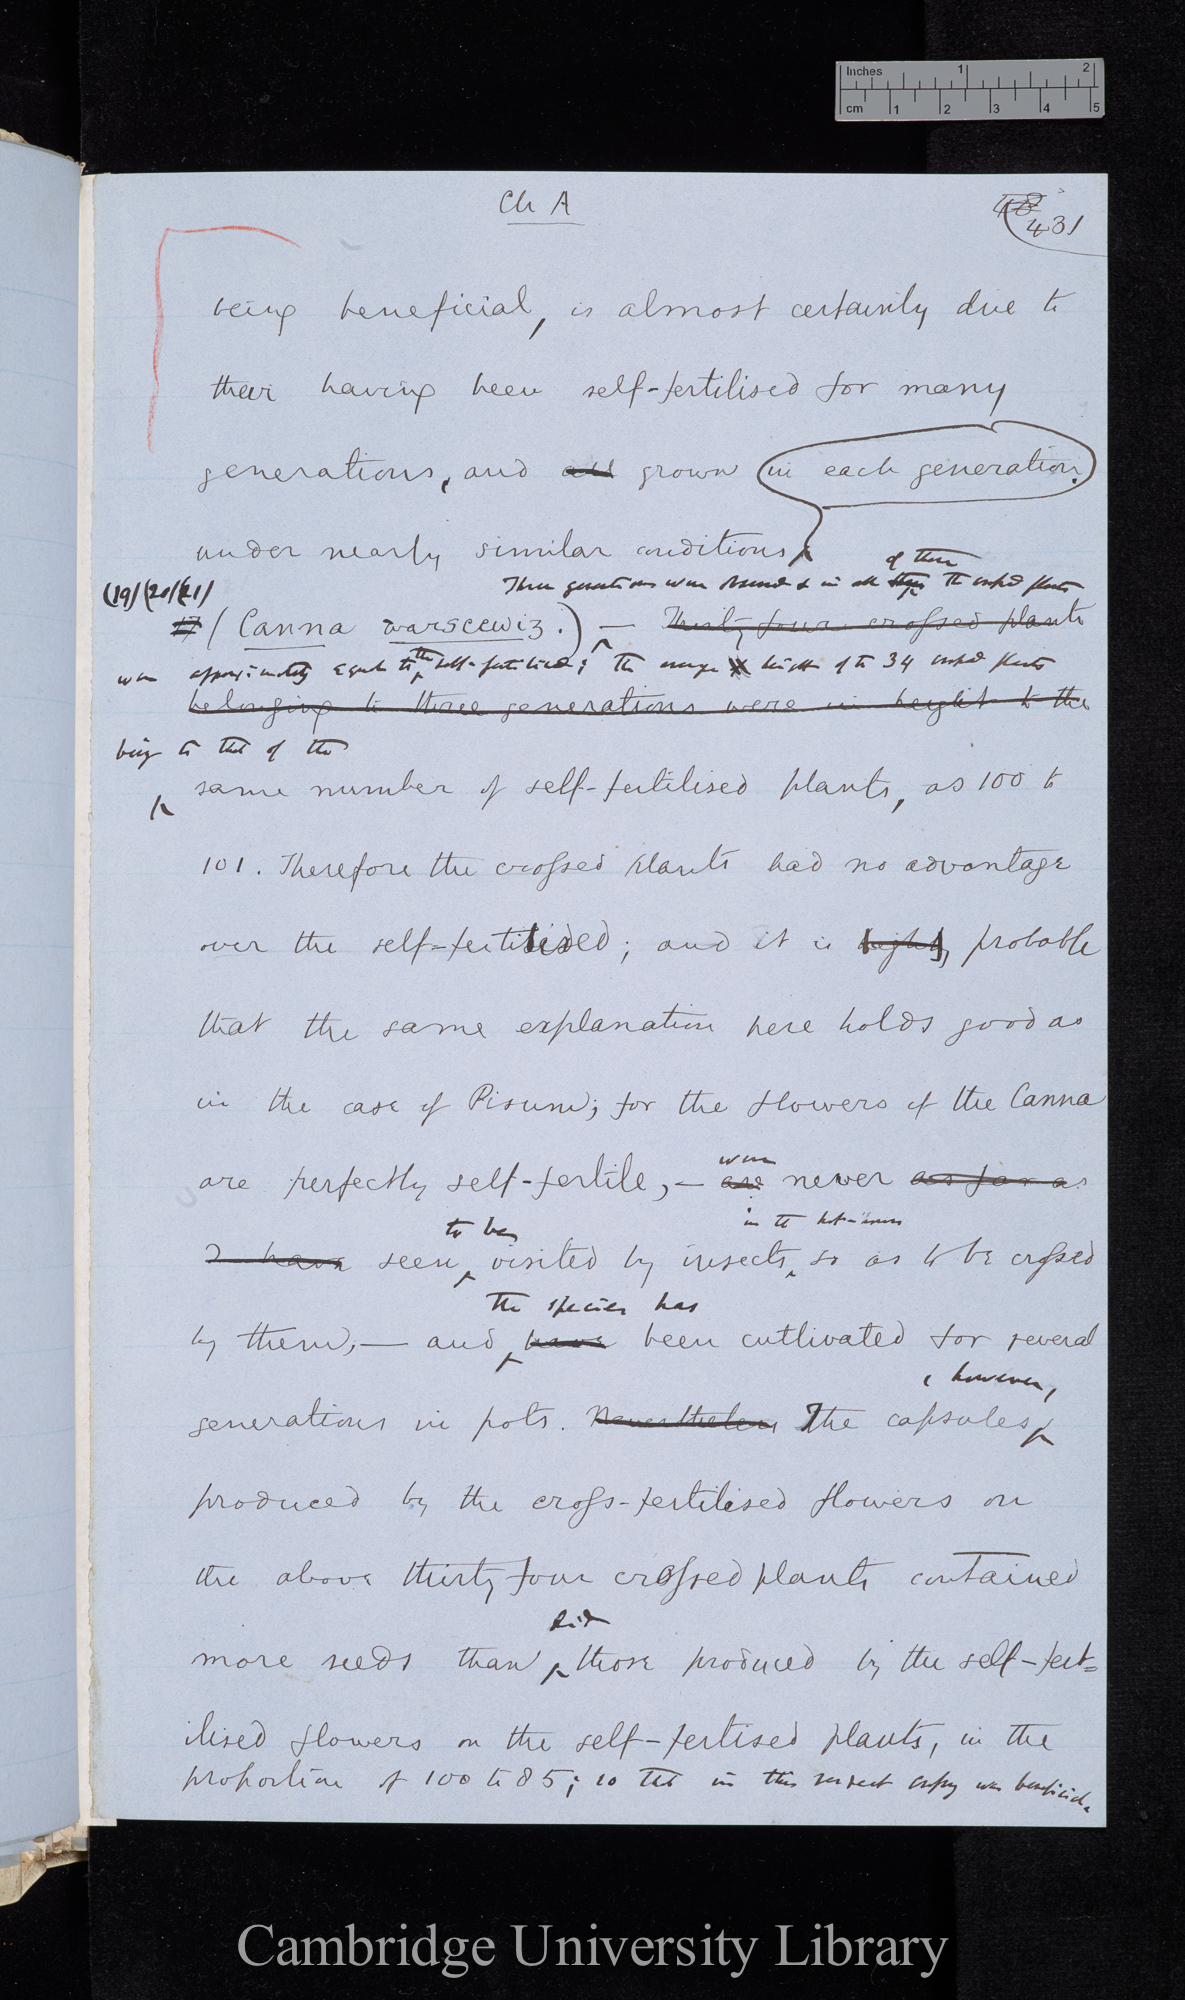 Inches 1 2
cm 1 2 3 4 5
Ch A
48
431
being beneficial, is almost certainly due to
their having been self-fertilised for many
generations, and all grown in each generation.
under nearly similar conditions
of these
Three generations were observed & in all the crossed plants
(19) (20) (21)
(Canna warscewiz.) — Thirty four crossed plants
were approximately equal to the self-fertilised; the average height of the 34 crossed plants
belonging to three generations were in height to the
being to that of the
same number of self-fertilised plants, as 100 to
101. Therefore the crossed plants had no advantage
over the self-fertilised; and it is highly probable
that the same explanation here holds good as
in the case of Pisum; for the flowers of the Canna
were
are perfectly self-fertile, — are never as far as
to be in the hot-house
I have seen visited by insects, so as to be crossed
the species has
by them, — and have been cutlivated for several
, however,
generations in pots. Nevertheless The capsules
produced by the cross-fertilised flowers on
the above thirty four crossed plants contained
did
more seeds than those produced by the self-fert=
ilised flowers on the self-fertised plants, in the
proportion of 100 to 85; so that in this respect crossing was beneficial.
Cambridge University Library